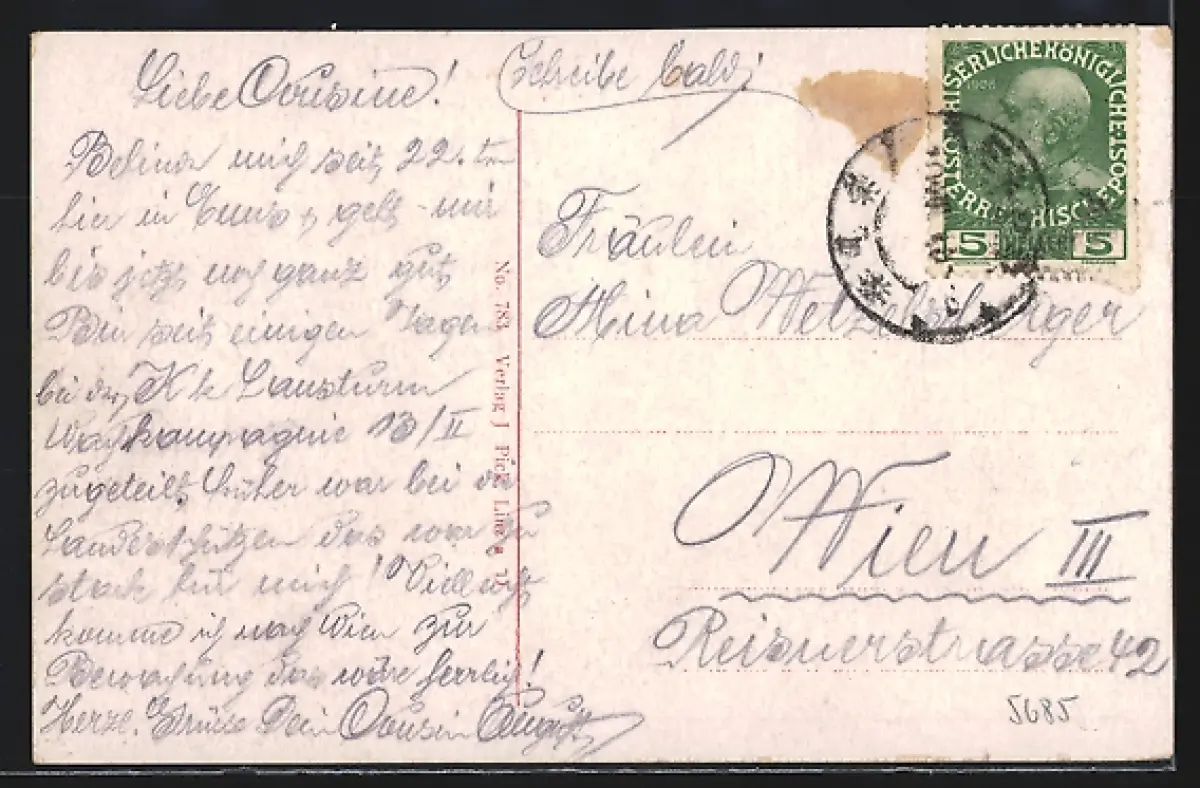 Liebe Cousine!
Schreibe bald!
Befinde mich seit 22. ten
hier in Enns, geht mir
bis jetzt noch ganz gut,
Bin seit einigen Tagen
bei der K k Landsturm
Wachkompagnie 13/II
zugeteilt, früher war bei den
Landesschützen das war zu
stark für mich! Vielleicht
komme ich nach Wien zur
Bewachung das wäre herrlich!
Herzl. Grüsse Dein Cousin August
No. 783 Verlag J Pick, Linz a
KAISERLICHE KÖNIGLICHE ÖSTERREICHISCHE POST
1908
5 HELLER 5
Fräulein
Mina
Wien III
Reisnerstrasse 42
5685